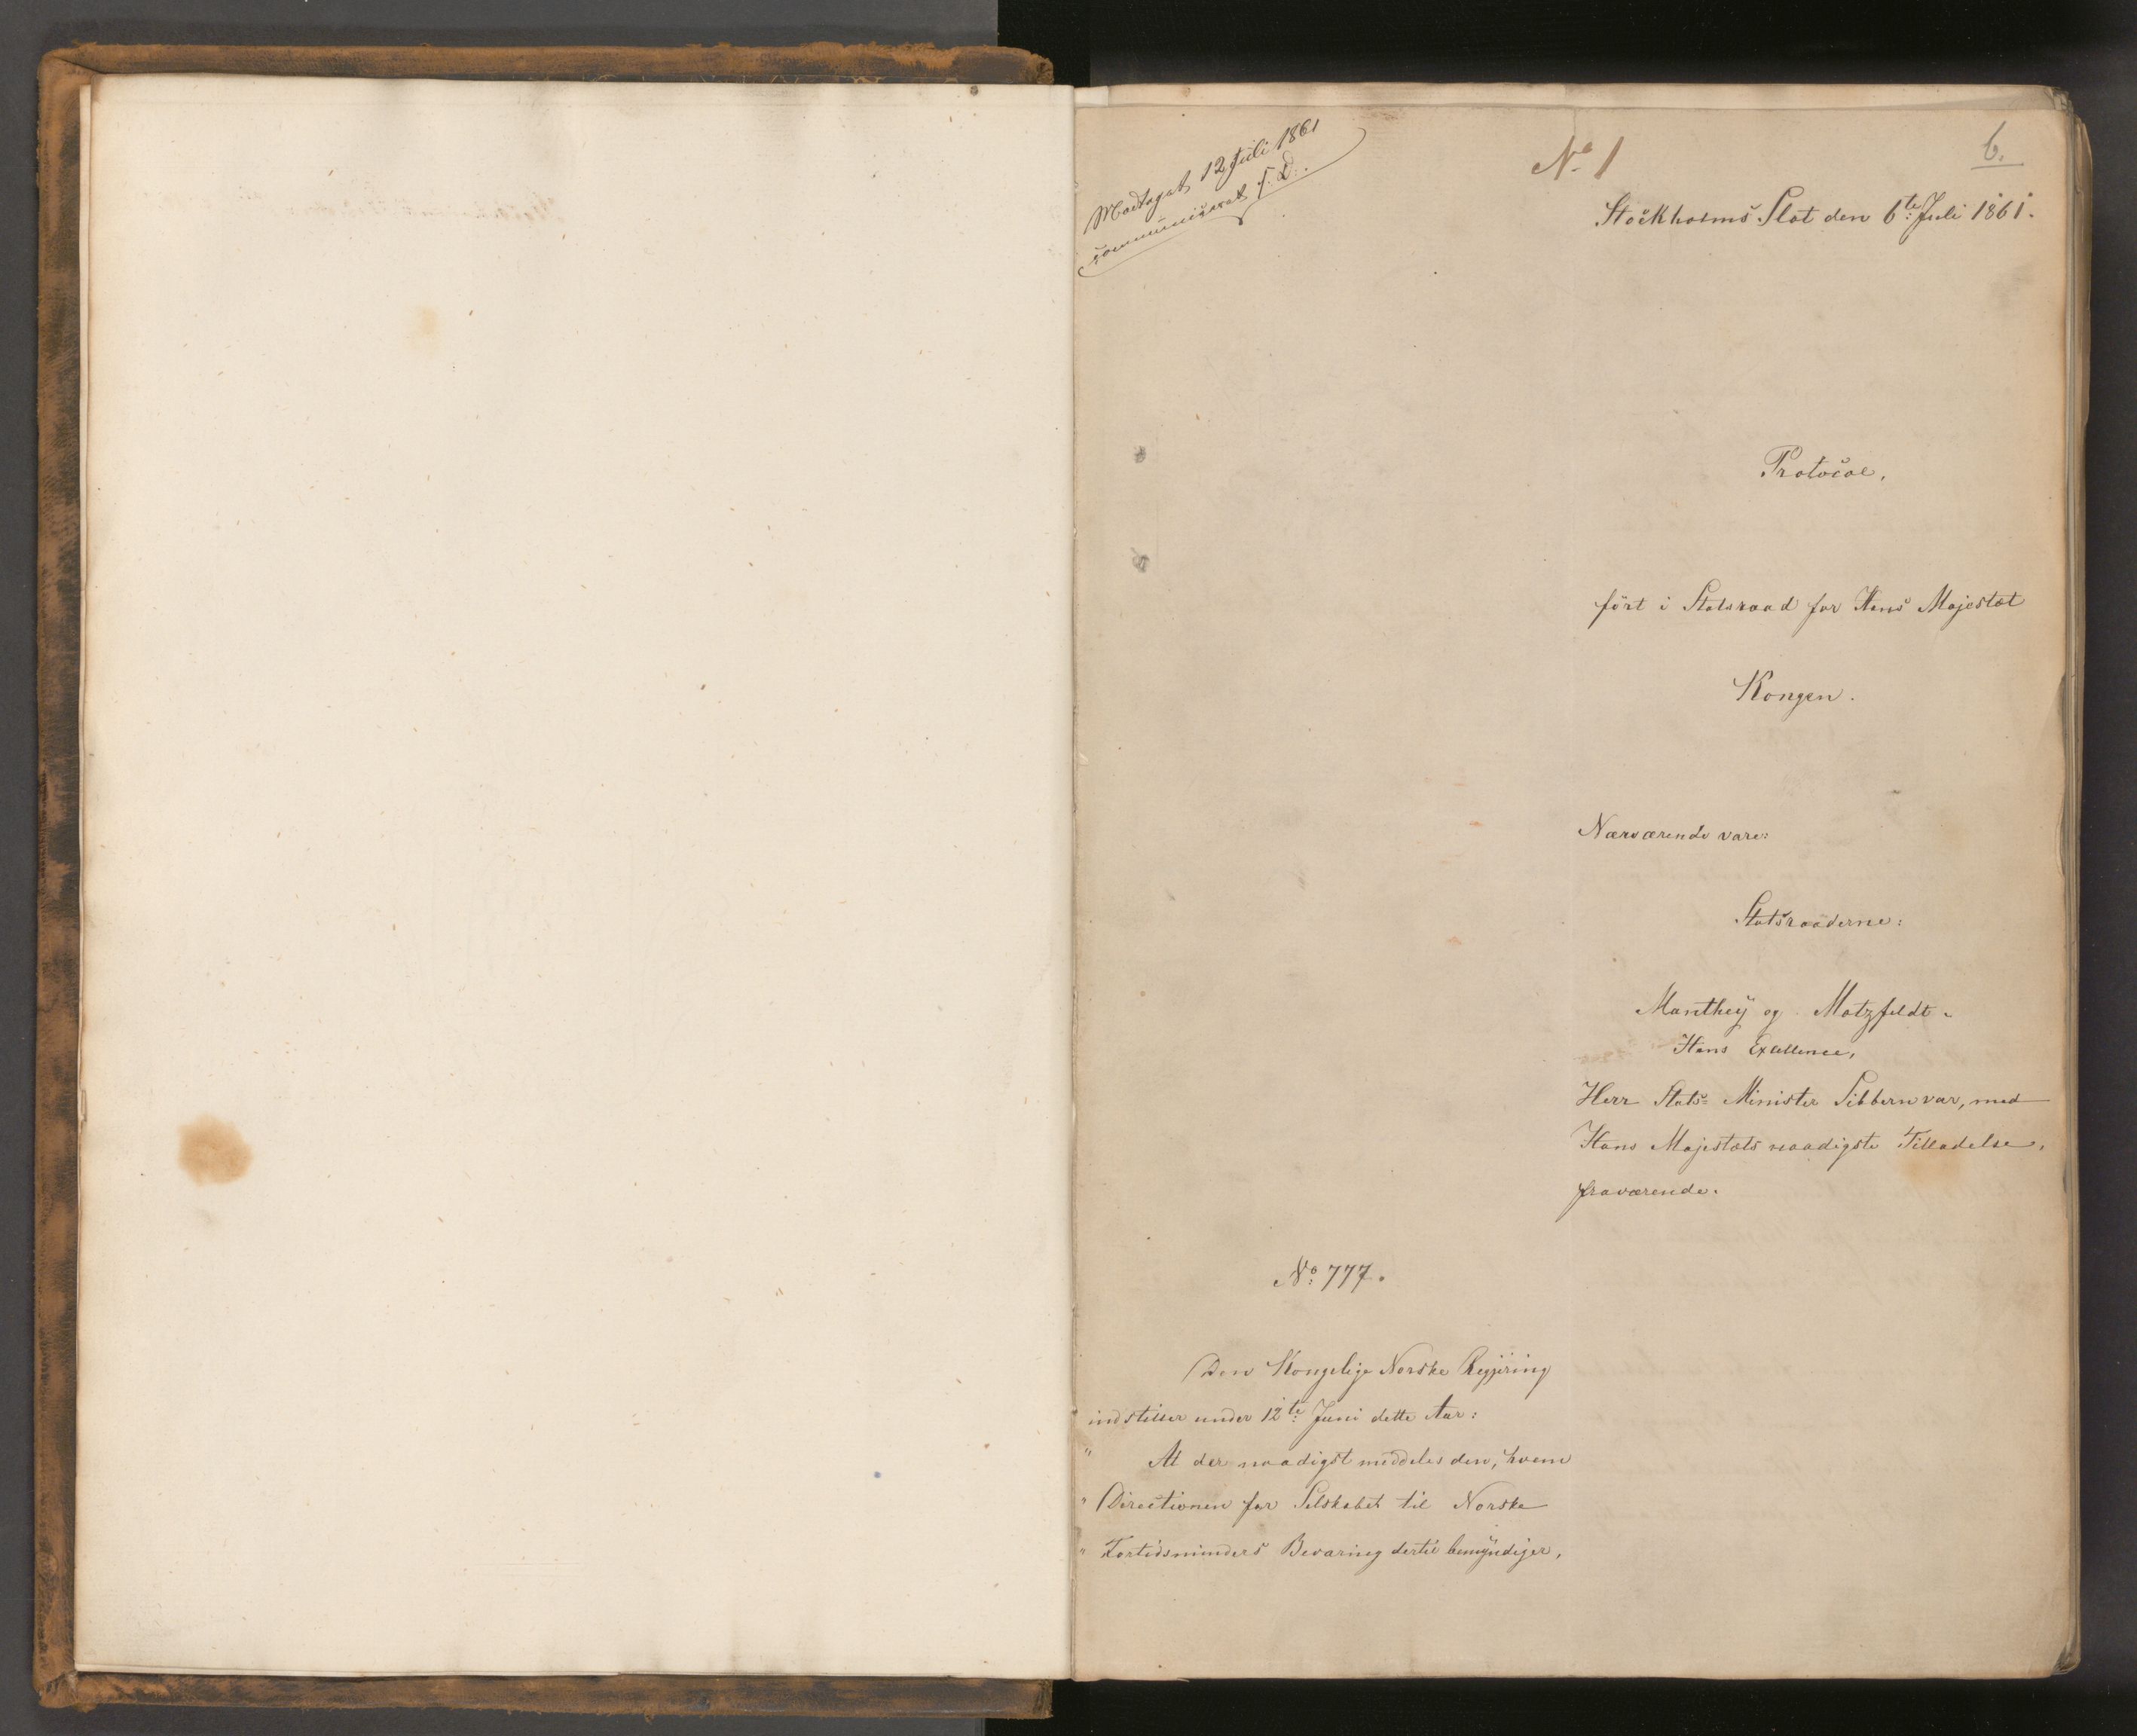 Modtaget 12 Juli 1861
communiceret s. D.
No 1
6.
Stockholms Slot den 6te Juli 1861.
Protocol,
fört i Statsraad for Hans Majestæt
Kongen.
Nærværende vare:
Statsraaderne:
Manthey og Motzfeldt.
Hans Excellence,
Herr Stats= Minister Sibbern var, med
Hans Majestæts naadigste Tilladelse,
fraværende.
No: 777.
Den Kongelige Norske Regjering
indstiller under 12te Juni dette Aar:
" At der naadigst meddeles den, hvem
" Directionen for Selskabet til Norske
" Fortidsminders Bevaring dertil bemyndiger,